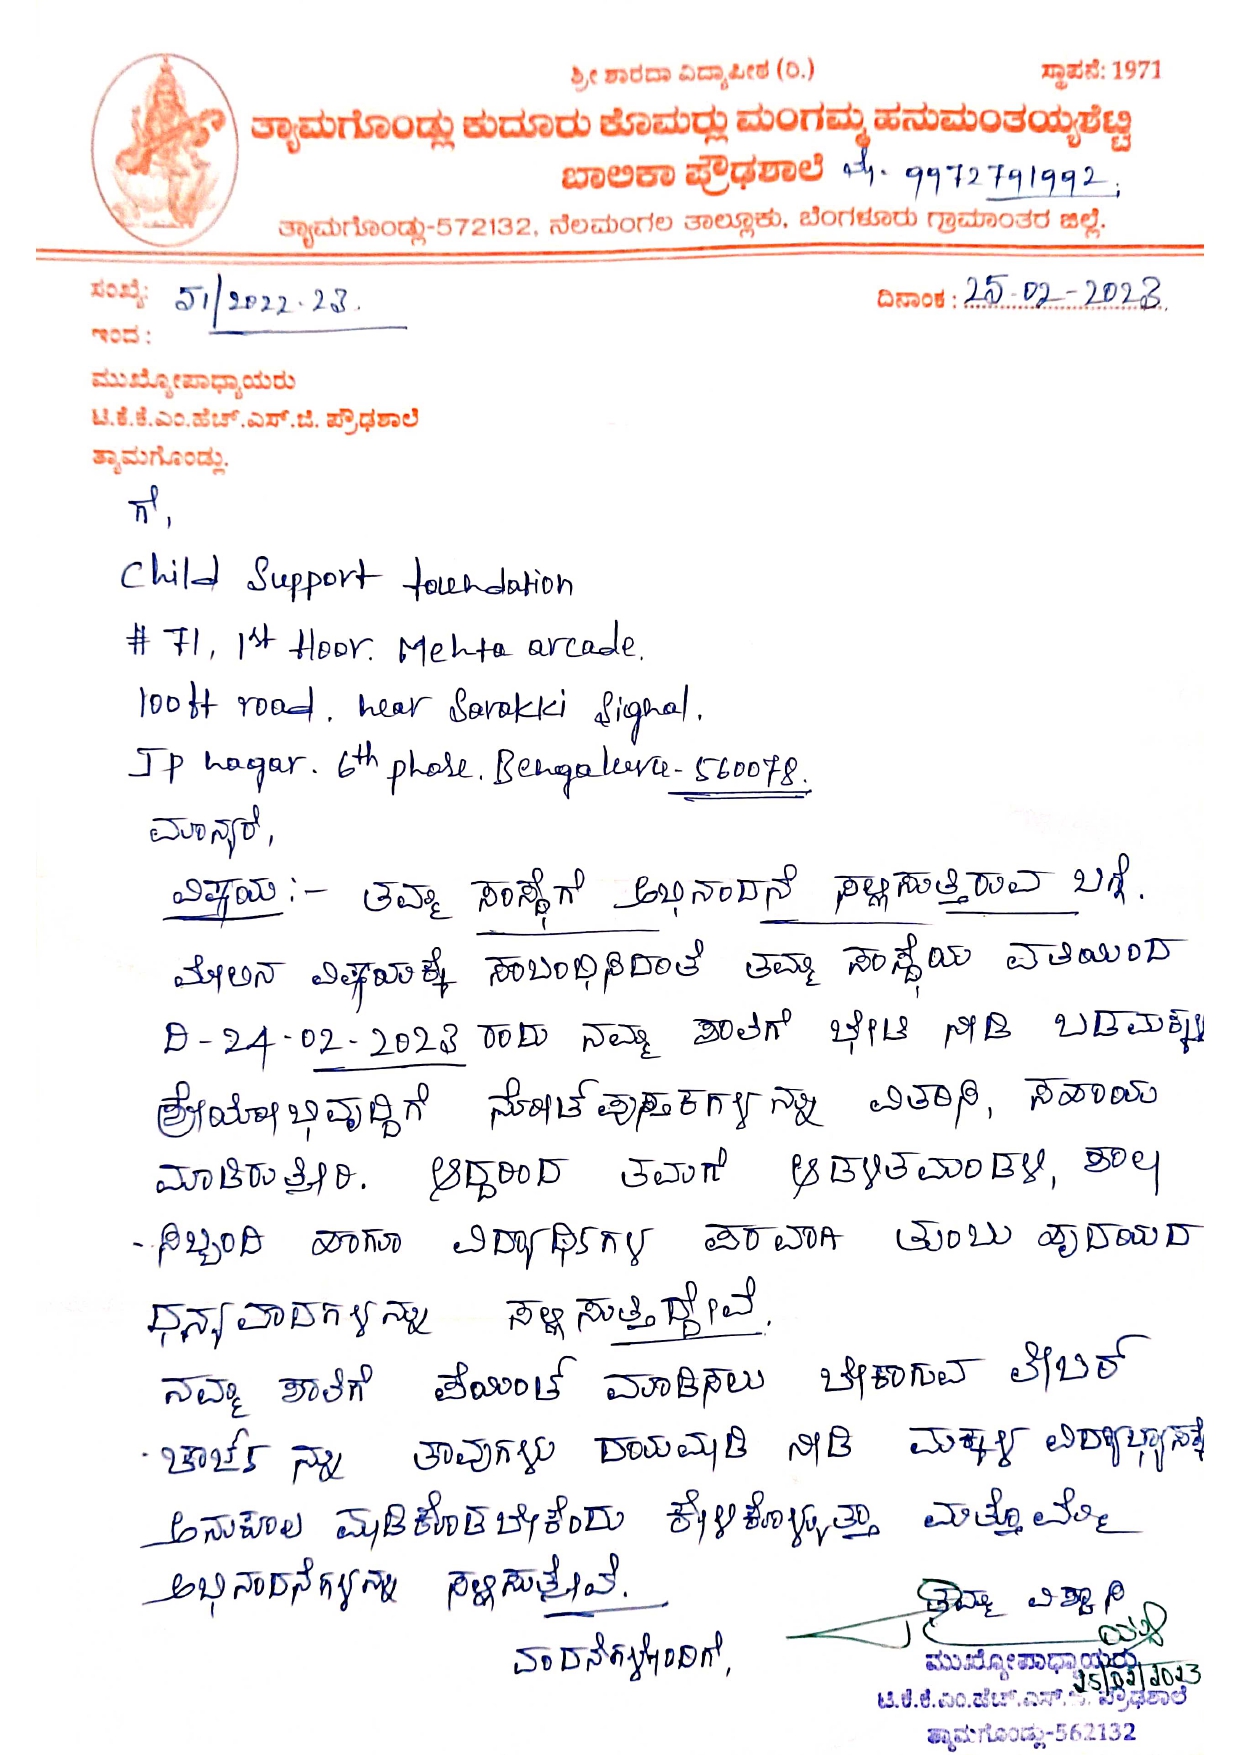 ಶ್ರೀ ಶಾರದಾ ವಿದ್ಯಾಪೀಠ (ರಿ.) ಸ್ಥಾಪನೆ: 1971
ತ್ಯಾಮಗೊಂಡ್ಲು ಕುದೂರು ಕೊಮರ್‍ಲು ಮಂಗಮ್ಮ ಹನುಮಂತಯ್ಯಶೆಟ್ಟಿ
ಬಾಲಿಕಾ ಪ್ರೌಢಶಾಲೆ ಮೊ. 9972791992;
ತ್ಯಾಮಗೊಂಡ್ಲು-572132, ನೆಲಮಂಗಲ ತಾಲ್ಲೂಕು, ಬೆಂಗಳೂರು ಗ್ರಾಮಾಂತರ ಜಿಲ್ಲೆ.
ಸಂಖ್ಯೆ: 51/2022-23. ದಿನಾಂಕ : 25-02-2023.
ಇಂದ :
ಮುಖ್ಯೋಪಾಧ್ಯಾಯರು
ಟಿ.ಕೆ.ಕೆ.ಎಂ.ಹೆಚ್.ಎಸ್.ಜಿ. ಪ್ರೌಢಶಾಲೆ
ತ್ಯಾಮಗೊಂಡ್ಲು.
ಗೆ,
Child Support foundation
# 71, 1st floor. Mehta arcade.
100ft road. near Sarakki Signal.
JP nagar. 6th phase. Bengaluru-560078.
ಮಾನ್ಯರೆ,
ವಿಷಯ :- ತಮ್ಮ ಸಂಸ್ಥೆಗೆ ಅಭಿನಂದನೆ ಸಲ್ಲಿಸುತ್ತಿರುವ ಬಗ್ಗೆ.
ಮೇಲಿನ ವಿಷಯಕ್ಕೆ ಸಂಬಂಧಿಸಿದಂತೆ ತಮ್ಮ ಸಂಸ್ಥೆಯ ವತಿಯಿಂದ
ದಿ-24-02-2023 ರಂದು ನಮ್ಮ ಶಾಲೆಗೆ ಭೇಟಿ ನೀಡಿ ಬಡಮಕ್ಕಳ
ಶ್ರೇಯೋಭಿವೃದ್ಧಿಗೆ ನೋಟ್ ಪುಸ್ತಕಗಳನ್ನು ವಿತರಿಸಿ, ಸಹಾಯ
ಮಾಡಿರುತ್ತೀರಿ. ಆದ್ದರಿಂದ ತಮಗೆ ಆಡಳಿತಮಂಡಳಿ, ಶಾಲಾ
- ಸಿಬ್ಬಂದಿ ಹಾಗೂ ವಿದ್ಯಾರ್ಥಿಗಳ ಪರವಾಗಿ ತುಂಬು ಹೃದಯದ
ಧನ್ಯವಾದಗಳನ್ನು ಸಲ್ಲಿಸುತ್ತಿದ್ದೇವೆ.
ನಮ್ಮ ಶಾಲೆಗೆ ಪೆಯಿಂಟ್ ಮಾಡಿಸಲು ಬೇಕಾಗುವ ಲೇಬರ್
- ಚಾರ್ಜ್ ನ್ನು ತಾವುಗಳು ದಯಮಾಡಿ ನೀಡಿ ಮಕ್ಕಳ ವಿದ್ಯಾಭ್ಯಾಸಕ್ಕೆ
ಅನುಕೂಲ ಮಾಡಿಕೊಡಬೇಕೆಂದು ಕೇಳಿಕೊಳ್ಳುತ್ತಾ ಮತ್ತೊಮ್ಮೆ
ಅಭಿನಂದನೆಗಳನ್ನು ಸಲ್ಲಿಸುತ್ತೇವೆ.
ತಮ್ಮ ವಿಶ್ವಾಸಿ
ವಂದನೆಗಳೊಂದಿಗೆ,
ಮುಖ್ಯೋಪಾಧ್ಯಾಯರು
25/02/2023
ಟಿ.ಕೆ.ಕೆ.ಎಂ.ಹೆಚ್.ಎಸ್.ಜಿ. ಪ್ರೌಢಶಾಲೆ
ತ್ಯಾಮಗೊಂಡ್ಲು-562132